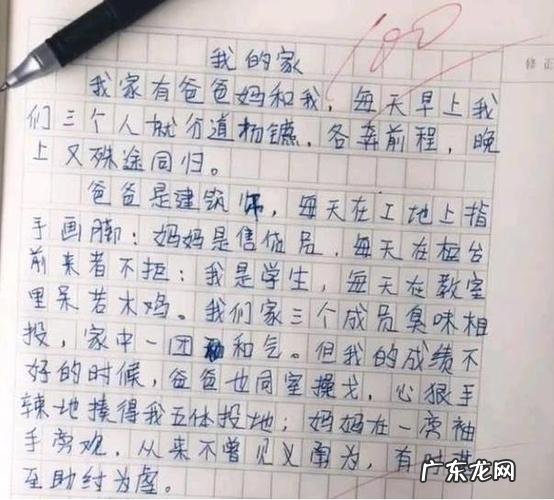 100
我的家
修正
我家有爸爸妈和我，每天早上我
们三个人就分道扬镳，各奔前程，晚
上又殊途同归。
爸爸是建筑师，每天在工地上指
手画脚；妈妈是售货员，每天在柜台
前来者不拒；我是学生，每天在教室
里呆若木鸡。我们家三个成员臭味相
投，家中一团和气。但我的成绩不
好的时候，爸爸也同室操戈，心狠手
辣地揍得我五体投地；妈妈在一旁袖
手旁观，从来不曾见义勇为，有时
至助纣为虐。
广东龙网